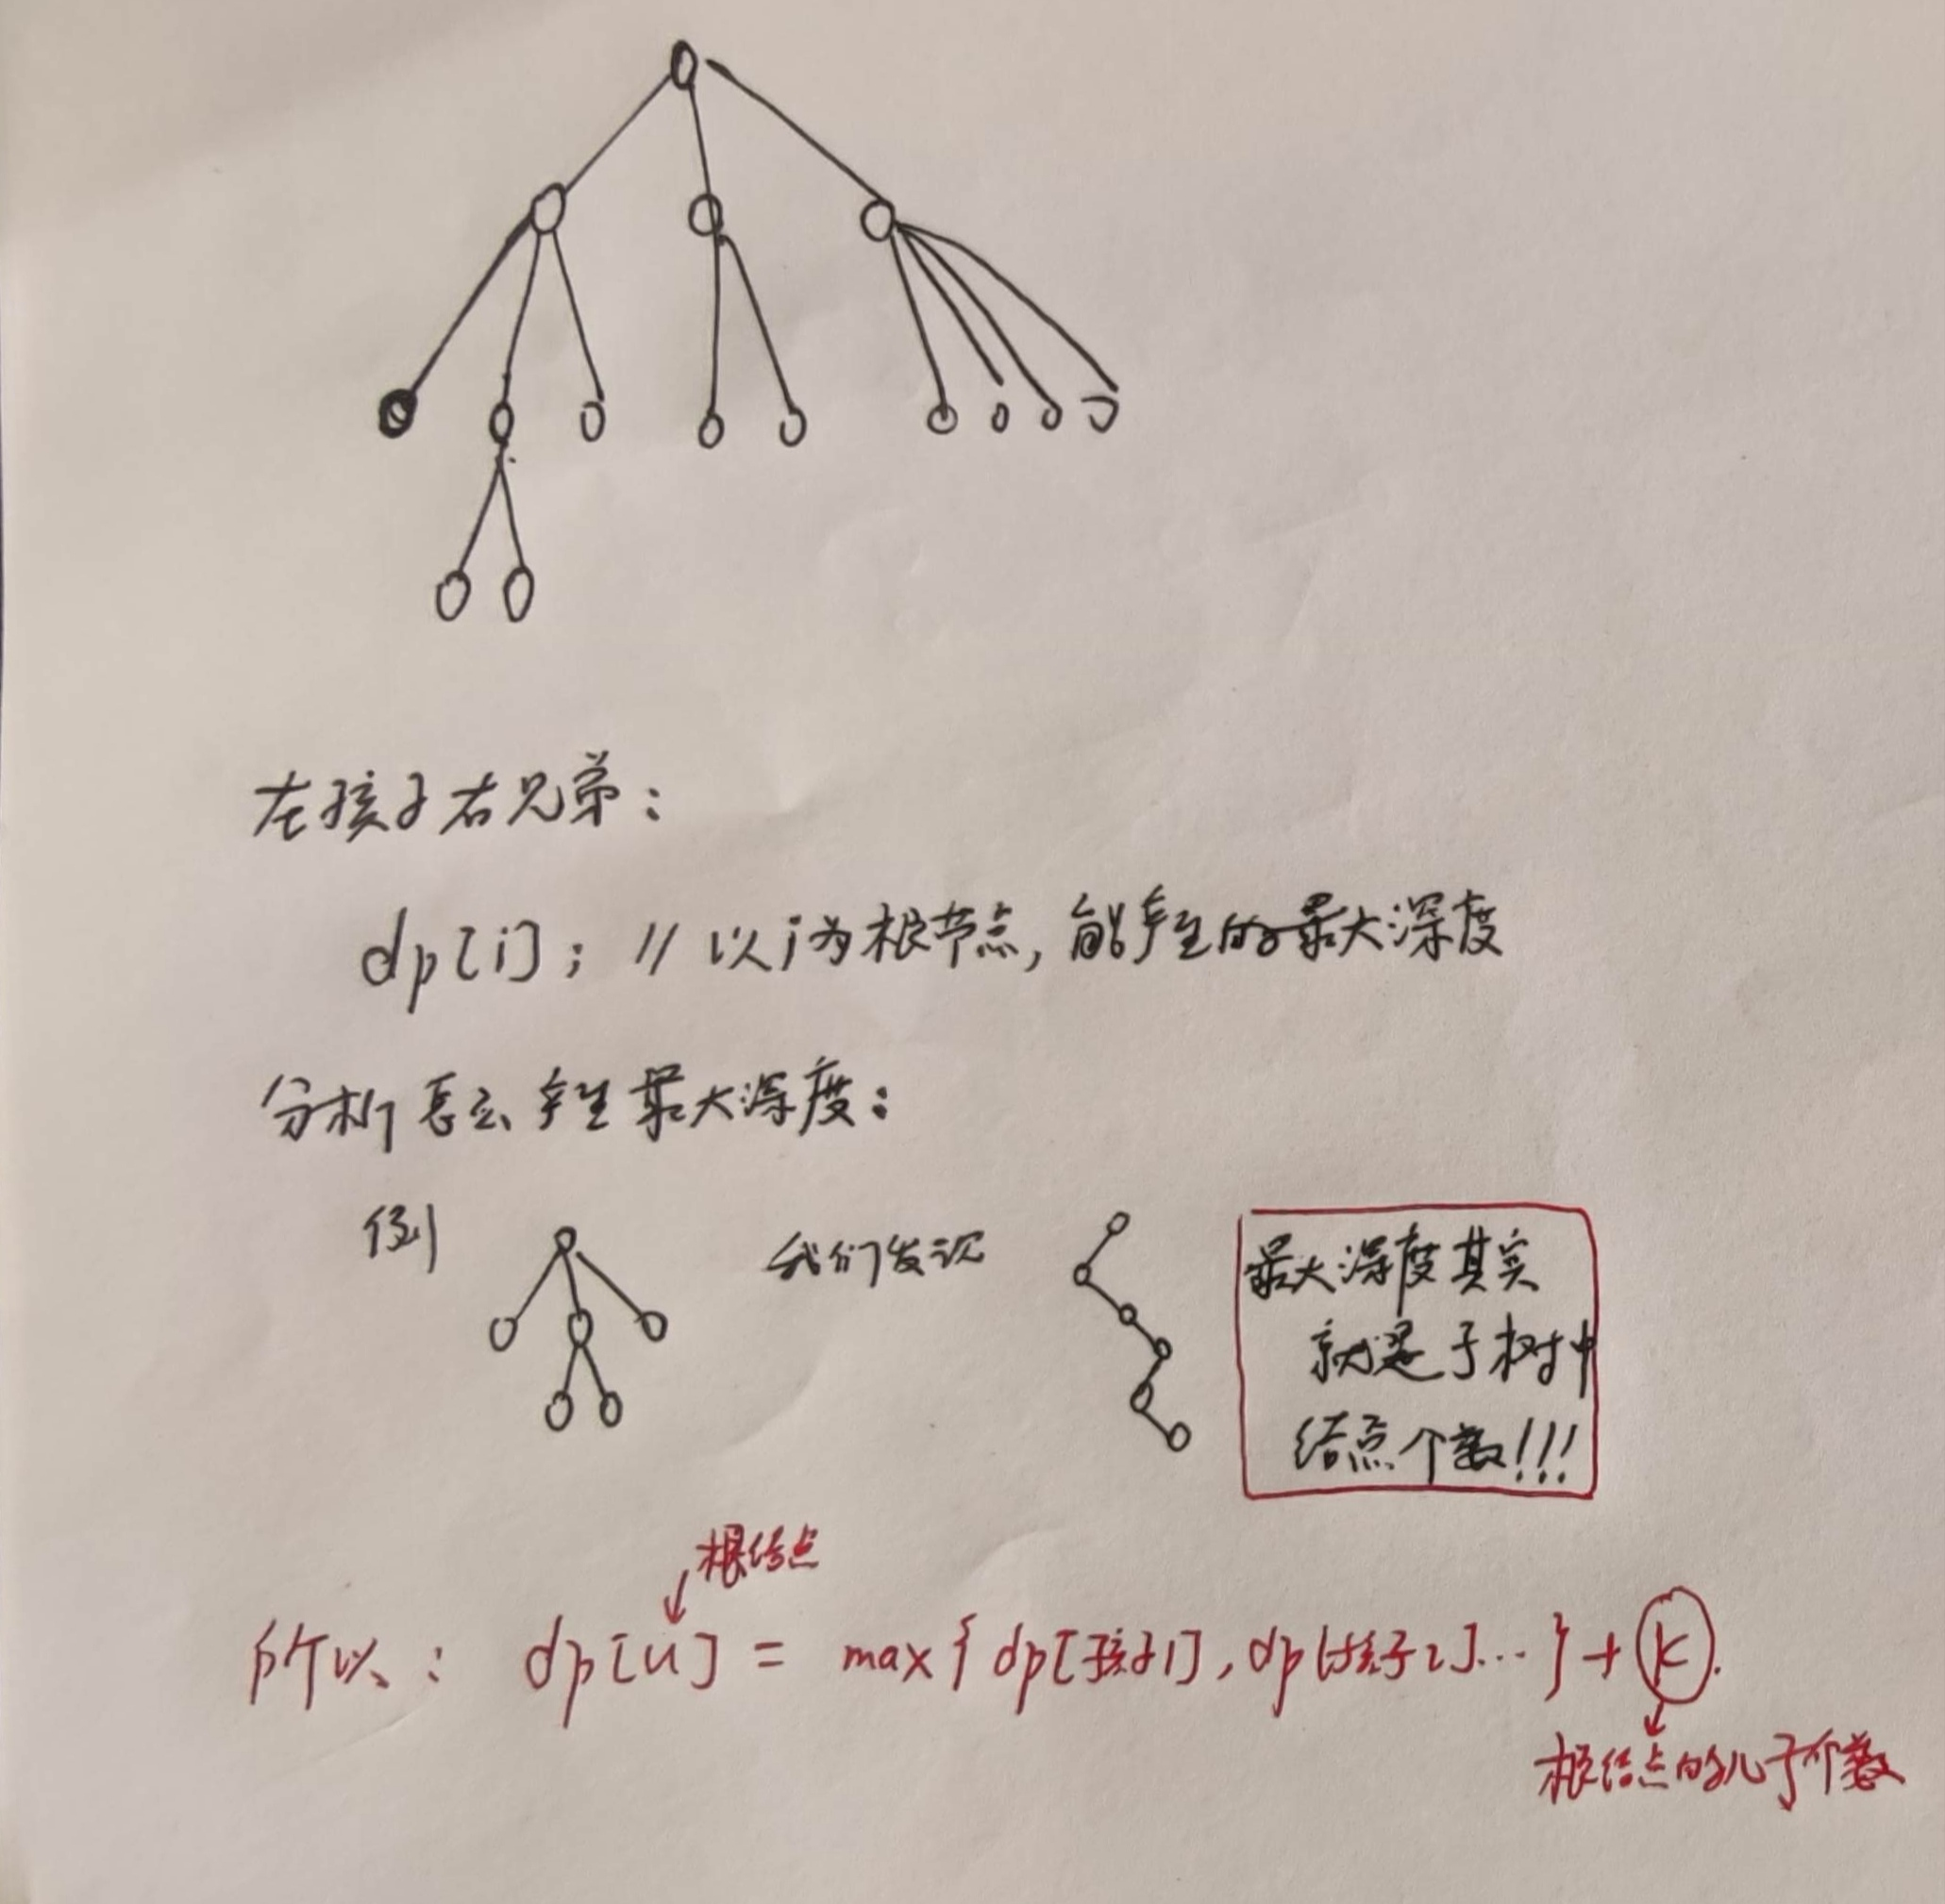 左孩子右兄弟：
dp[i]; // 以i为根节点, 能产生的最大深度
分析怎么产生最大深度：
例
我们发现
最大深度其实
就是子树中
结点个数!!!
根结点
所以： dp[u] = max{ dp[孩子1], dp[孩子2]... } + k.
根结点的儿子个数